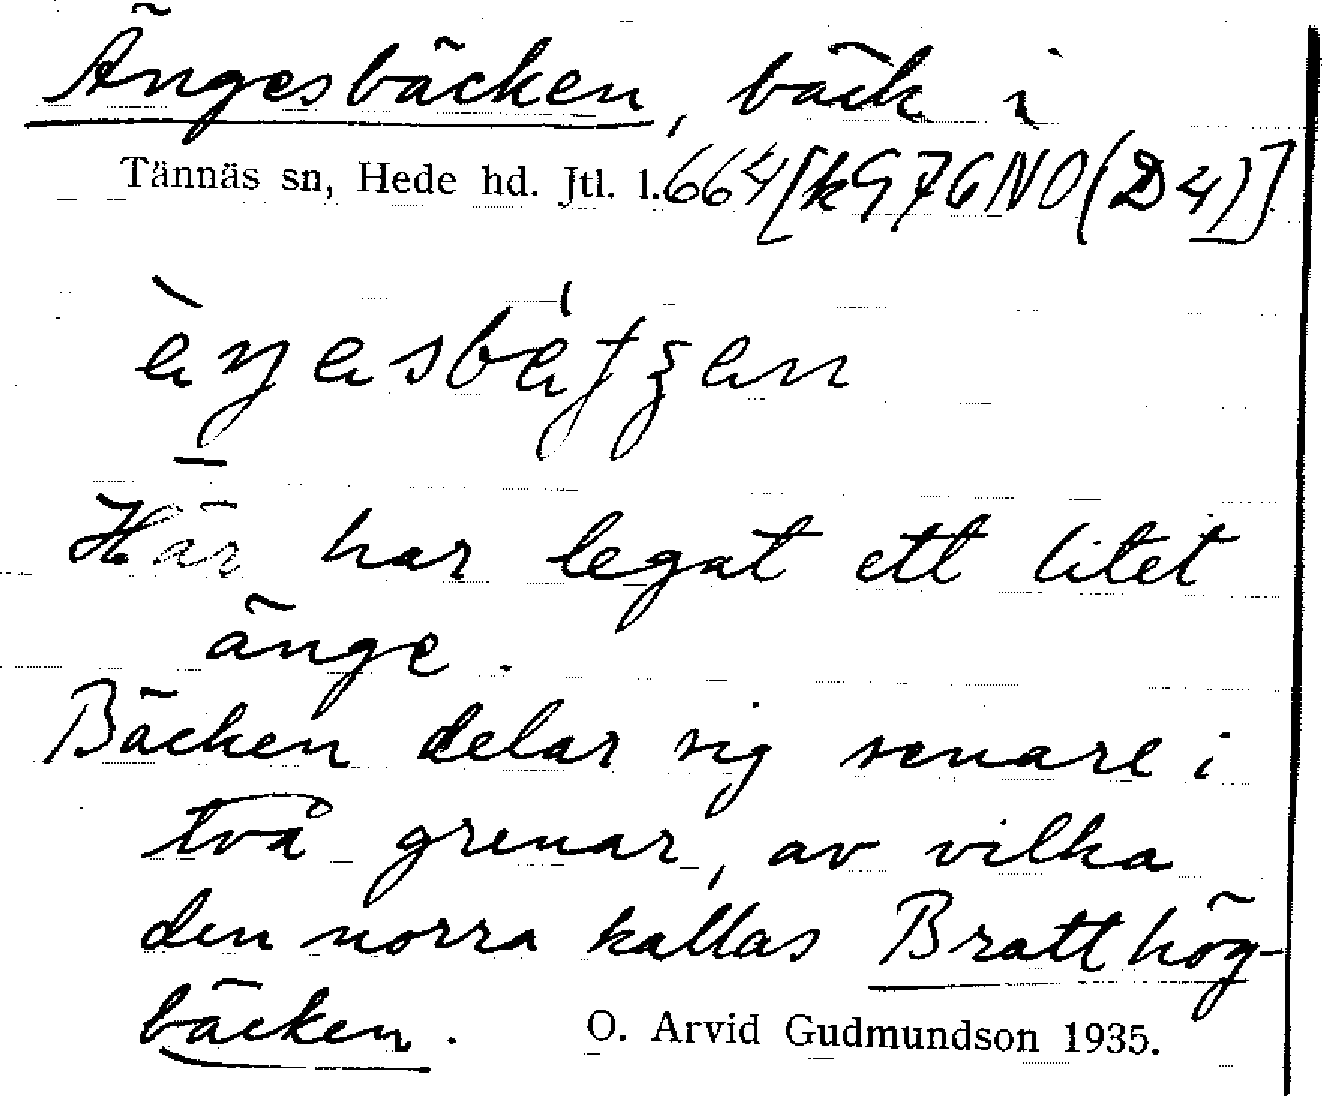 Ängesbäcken, bäck i
Tännäs sn, Hede hd. Jtl. l. 664 [k976NO(D4)]
Här har legat ett litet
änge.
Bäcken delar sig senare i
två grenar, av vilka
den norra kallas Bratthög-
bäcken. O. Arvid Gudmundson 1935.